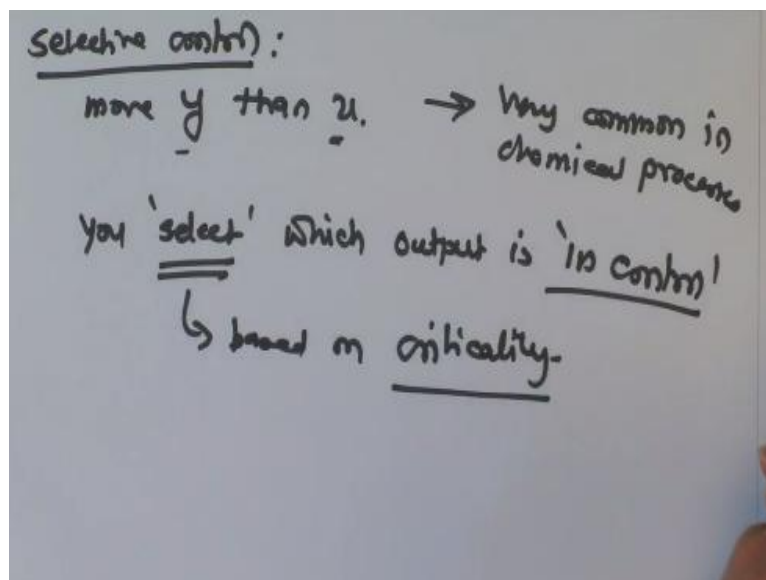 Selective control:
more y than u. → Very common in
chemical processes
You 'select' which output is 'in control'
↳ based on criticality.